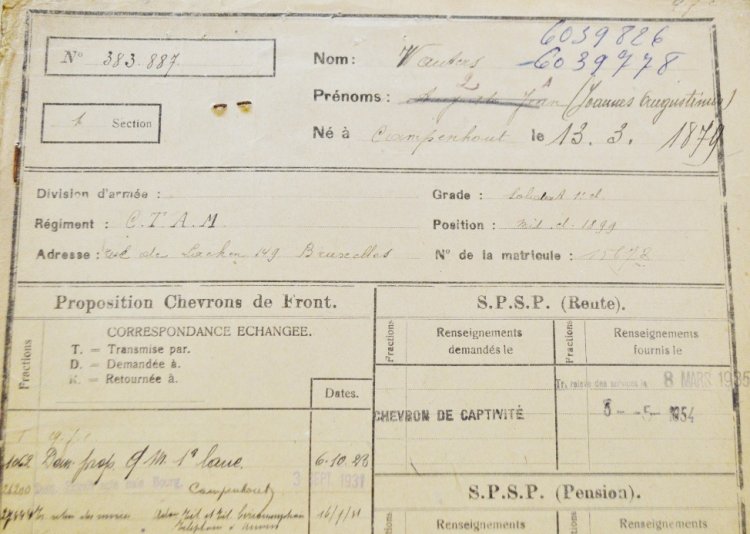 6039826
N° 383.887
Nom : Wauters 6039778
Prénoms : Auguste Jean (Joannes Augustinus)
2 1
1 Section
Né à Campenhout le 13. 3. 1879
Division d'armée :
Grade : Soldat 1e cl.
Régiment : C.T.A.M
Position : mil. cl. 1899
Adresse : de Laeken 149 Bruxelles
N° de la matricule :
Proposition Chevrons de Front.
CORRESPONDANCE ECHANGEE.
T. = Transmise par.
D. = Demandée à.
R. = Retournée à.
Fractions
Dates.
Dem. prop. 9 M. 1e 6.10.23
Bourg. 3 SEPT. 1931
Campenhout
16/9/31
S.P.S.P. (Rente).
Fractions
Renseignements
demandés le
Fractions
Renseignements
fournis le
Tr. relevé des services le 8 MARS 1935
CHEVRON DE CAPTIVITÉ
5 - - 5 - 1954
S.P.S.P. (Pension).
Renseignements
Renseignements